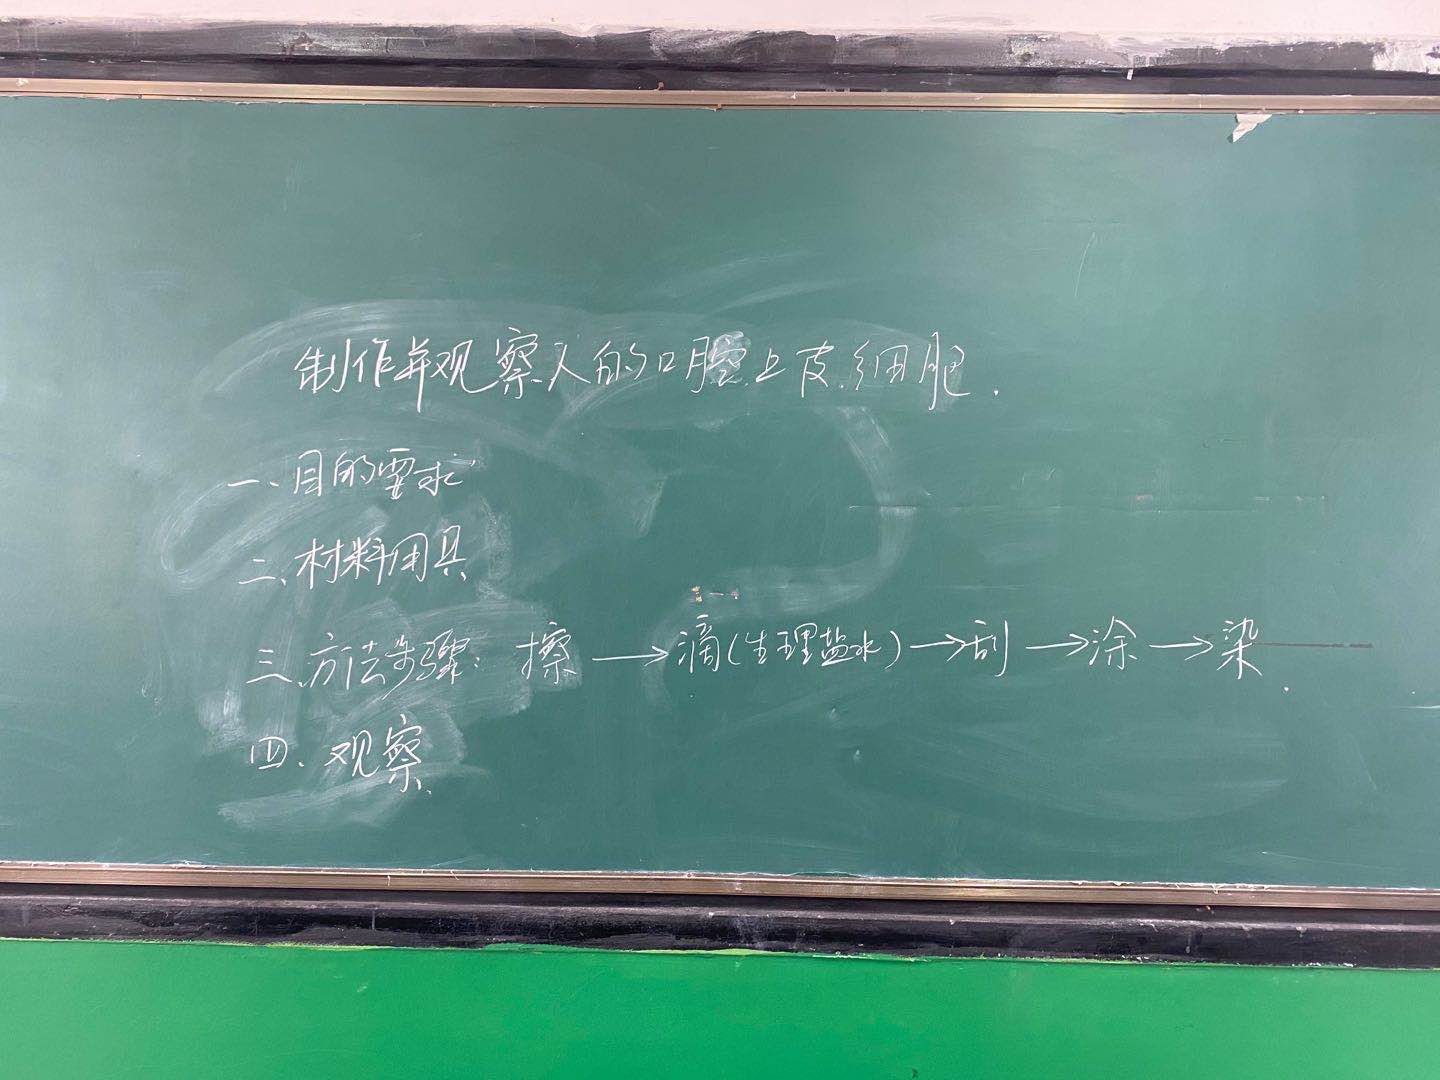 制作并观察人的口腔上皮细胞.
一、目的要求
二、材料用具
三、方法步骤: 擦→滴(生理盐水)→刮→涂→染.
四、观察.